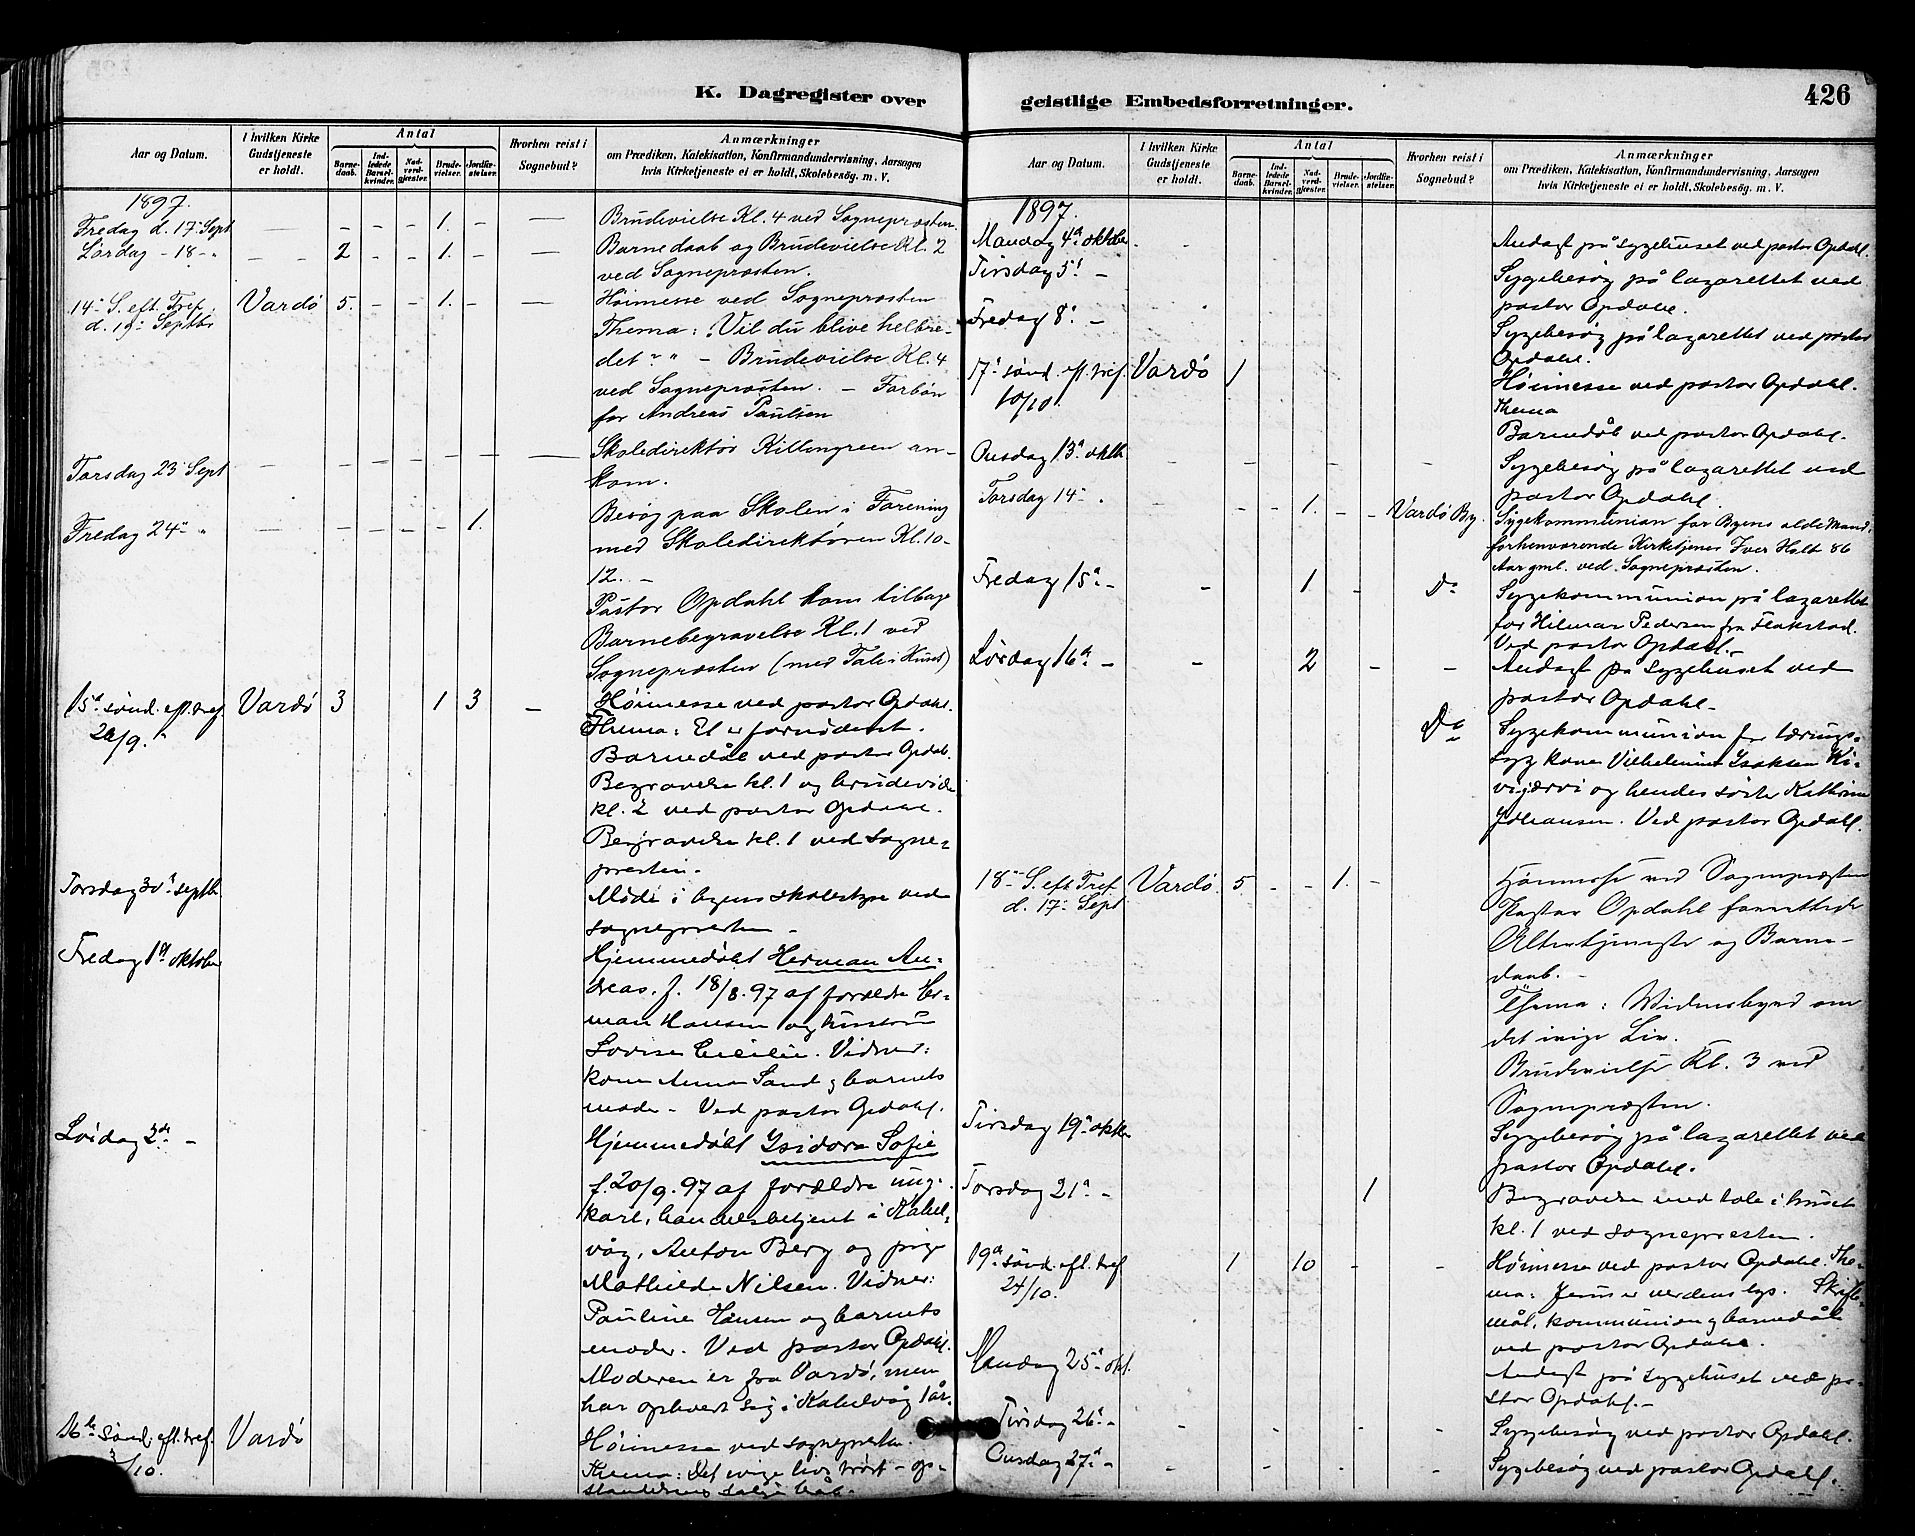 K. Dagregister over
geistlige Embedsforretninger.
426
Aar og Datum.
I hvilken Kirke
Gudstjeneste
er holdt.
Antal
Barne-
daab.
Ind-
ledede
Barsel-
kvinder.
Nad-
verd-
gjæster.
Brude-
vielser.
Jordfæ-
stelser.
Hvorhen reist i
Sognebud?
Anmærkninger
om Prædiken, Katekisation, Konfirmandundervisning, Aarsagen
hvis Kirketjeneste ei er holdt, Skolebesøg. m. V.
1897.
Fredag d. 17. Sept — - - - 1. - — Brudevielse Kl. 4 ved Sognepræsten.
Lørdag - 18 - " - - 2 - - 1. - — Barnedaab og Brudevielse Kl. 2
ved Sognepræsten.
14. S. eft. Tref. Vardø 5. - - 1. - — Høimesse ved Sognepræsten
d. 19. Septbr
Thema: "Vil du blive helbre-
det" - Brudevielse Kl. 4
ved Sognepræsten. - Forbøn
for Andreas Paulsen
Torsdag 23 Sept — - - - - - — Skoledirektør Killengreen an-
kom.
Fredag 24 " — - - - - 1. Besøg paa Skolen i Forening
med Skoledirektøren Kl. 10-
12. -
Pastor Opdahl kom tilbage
Barnebegravelse Kl. 1 ved
Sognepræsten (med Tale i Huset)
15de sønd. eft. tref. Vardø 3 1 3 - Høimesse ved pastor Opdahl.
26/9.
Thema: Et er fornødent.
Barnedåb ved pastor Opdahl.
Begravelse kl. 1 og brudevielse
kl. 2 ved pastor Opdahl.
Begravelse kl. 1 ved sogne-
presten.
Torsdag 30te septb.
Møde i byens skolestyre ved
sognepresten -
Fredag 1ste oktober
Hjemmedøbt Herman An-
dreas, f. 18/8. 97 af forældre Her-
man Hansen og hustru
Lovise Cecilie. Vidner:
kone Anna Sand og barnets
moder - Ved pastor Opdahl.
Lørdag 2den -
Hjemmedøbt Isidora Sofie
f. 20/9. 97 af forældre ung-
karl, handelsbetjent i Kabel-
våg, Anton Berg og pige
Mathilde Nilsen. Vidner:
Pauline Hansen og barnets
moder. Ved pastor Opdahl.
Moderen er fra Vardø, men
har opholdt sig i Kabelvåg 1 år.
16de sønd. eft. tref. Vardø Høimesse ved sognepresten.
3/10.
Thema: Det evige livs trøst - op-
standelsens salige håb.
Aar og Datum.
I hvilken Kirke
Gudstjeneste
er holdt.
Antal
Barne-
daab.
Ind-
ledede
Barsel-
kvinder.
Nad-
verd-
gjæster.
Brude-
vielser.
Jordfæ-
stelser.
Hvorhen reist i
Sognebud?
Anmærkninger
om Prædiken, Katekisation, Konfirmandundervisning, Aarsagen
hvis Kirketjeneste ei er holdt, Skolebesøg. m. V.
1897.
Mandag 4de oktober - Andagt på sygehuset ved pastor Opdahl.
Tirsdag 5te - Sygebesøg på lazarettet ved
pastor Opdahl.
Fredag 8de - Sygebesøg på lazarettet ved pastor
Opdahl.
17de sønd. eft. tref. Vardø 1 Høimesse ved pastor Opdahl.
10/10.
Thema
Barnedåb ved pastor Opdahl.
Onsdag 13de oktb. - Sygebesøg på lazarettet ved
pastor Opdahl.
Torsdag 14 - - - - 1. - - Vardø By. Sygekommunion for Byens ældste Mand,
forhenværende Kirketjener Iver Holt 86
Aar gml. ved Sognepræsten.
Fredag 15de - - 1 - Do Sygekommunion på lazarettet
for Hilmar Pedersen fra Flakstad.
Ved pastor Opdahl.
Lørdag 16de - - 2 - - Andagt på sygehuset ved
pastor Opdahl -
Do Sygekommunion for tærings-
syg kone Vilhelmine Isaksen Ki-
vijærvi og hendes søster Kathrine
Johansen. Ved pastor Opdahl.
18 S. eft Tref Vardø. 5 - - 1. - Høimesse ved Sognepræsten
d. 17. Sept
Pastor Opdahl forrettede
Altertjeneste og Barne-
daab. -
Thema: Vidnesbyrd om
det evige Liv.
Brudevielse Kl. 3 ved
Sognepræsten.
Tirsdag 19de oktbr. Sygebesøg på lazarettet ved
pastor Opdahl.
Torsdag 21de - 1 Begravelse med tale i huset
kl. 1 ved sognepresten.
19de sønd. eft. tref 1 10 - - Høimesse ved pastor Opdahl. The-
24/10.
ma: Jesus er verdens lys. Skrifte-
mål, kommunion og barnedåb
ved pastor Opdahl.
Mandag 25de okt. Andagt på sygehuset ved pa-
stor Opdahl. -
Tirsdag 26de - - - - Sygebesøg ved pastor Opdahl.
Onsdag 27de - - - - Sygebesøg ved pastor Opdahl.